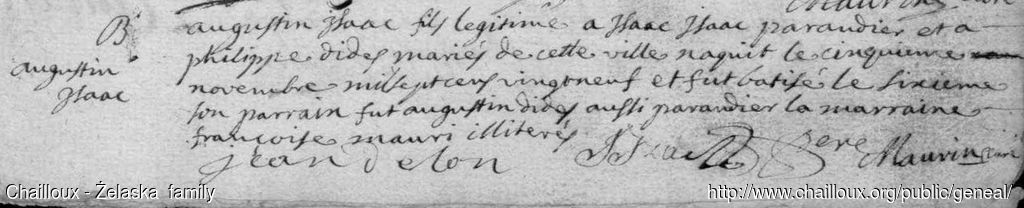 B
augustin
Isaac
augustin Isaac fils legitime a Isaac Isaac parandier et a
philippe dides mariés de cette ville naquit le cinquieme
novembre mil sept cens vingt neuf et fut batisé le sixieme
son parrain fut augustin dides aussi parandier la marraine
francoise mauri illiterés
jean delon Isaac pere Maurin curé
Chailloux - Żelaska family
http://www.chailloux.org/public/geneal/